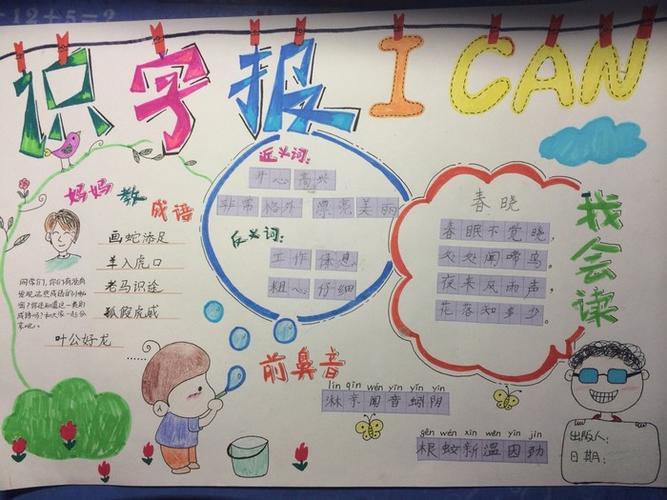 识字报 I CAN
妈妈教
成语
画蛇添足
羊入虎口
老马识途
狐假虎威
叶公好龙……
同学们,你们有没有
发现这些成语的小秘
密?你还知道这一类的
成语吗?和大家一起分
享吧。
近义词:
开心 高兴
非常 格外 漂亮 美丽
反义词:
工作 休息
粗心 仔细
春晓
春眠不觉晓,
处处闻啼鸟。
夜来风雨声,
花落知多少。
我会读
前鼻音
lín qīn wén yīn yǐn yīn
淋亲闻音蚓阴
gēn wén xīn wēn yīn jìn
根蚊新温因劲
出版人:
日期: